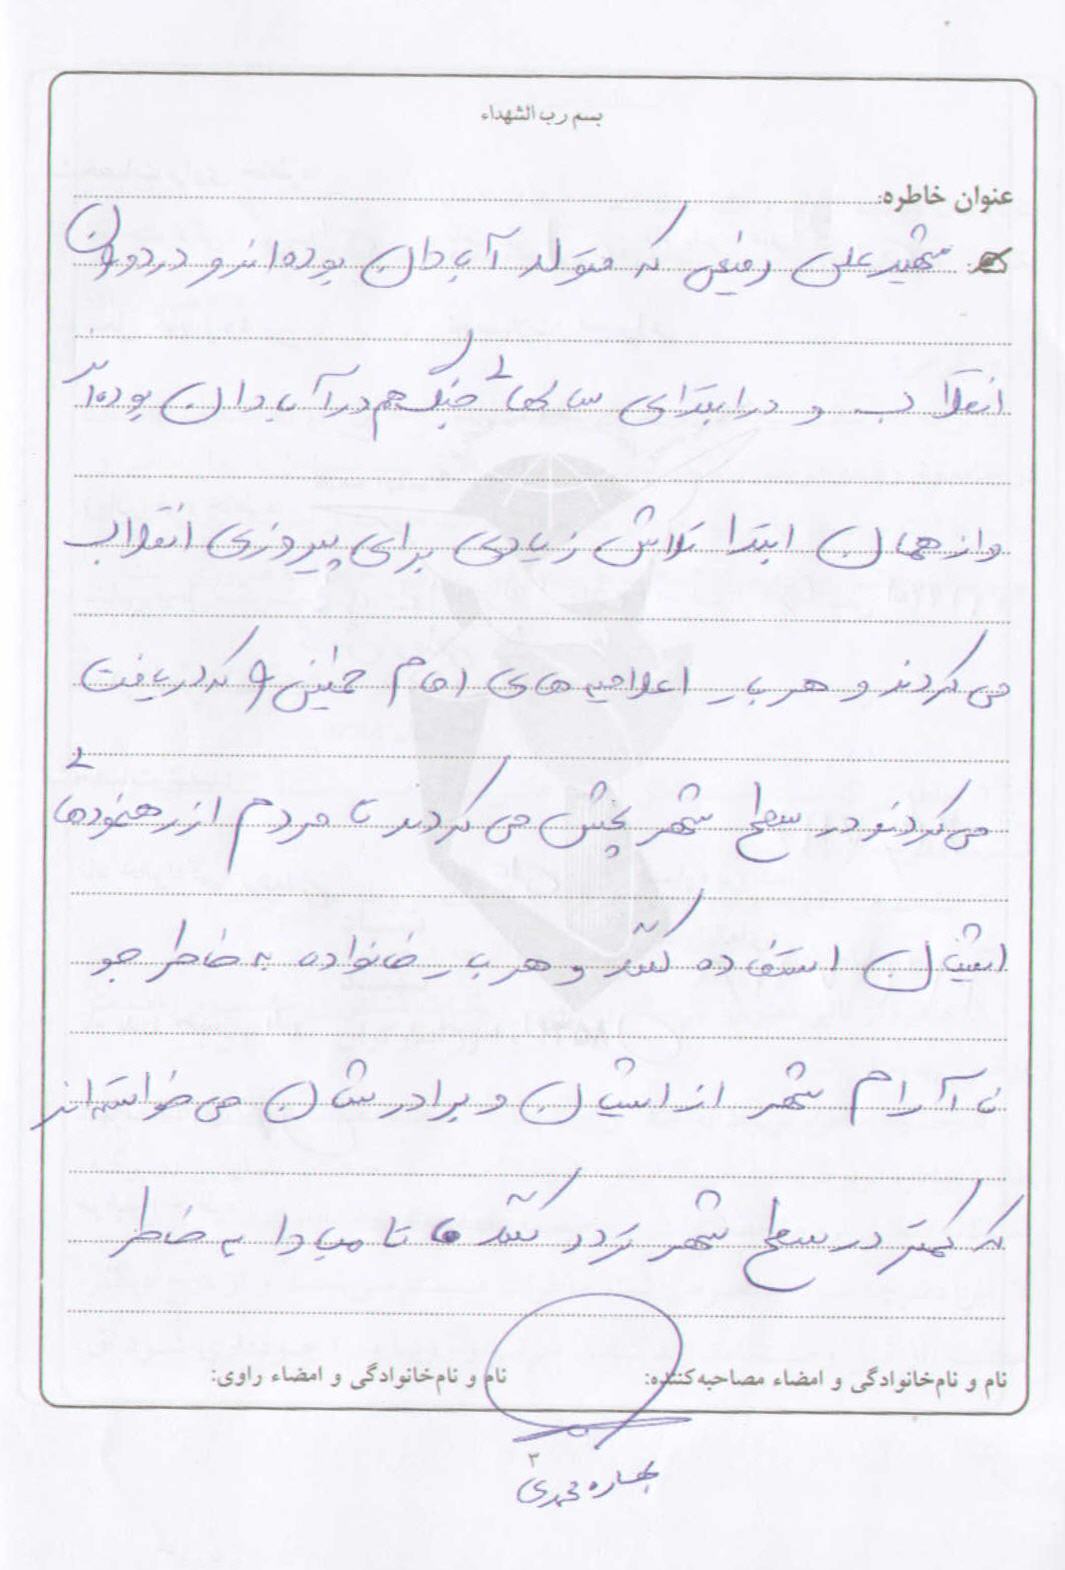 بسم رب الشهداء
عنوان خاطره:
شهید علی رفیعی که متولد آبادان بوده اند و در دوران
انقلاب و در ابتدای سالهای جنگ هم در آبادان بوده اند
و از همان ابتدا تلاش زیادی برای پیروزی انقلاب
می کردند و هر بار اعلامیه های امام خمینی که دریافت
می کردند در سطح شهر پخش می کردند تا مردم از رهنمودهای
ایشان استفاده کنند و هر بار خانواده به خاطر جو
نا آرام شهر از ایشان و برادرشان می خواسته اند
که کمتر در سطح شهر تردد کنند تا مبادا به خاطر
نام و نام‌خانوادگی و امضاء مصاحبه‌کننده: نام و نام‌خانوادگی و امضاء راوی:
۳
بهاره محمدی